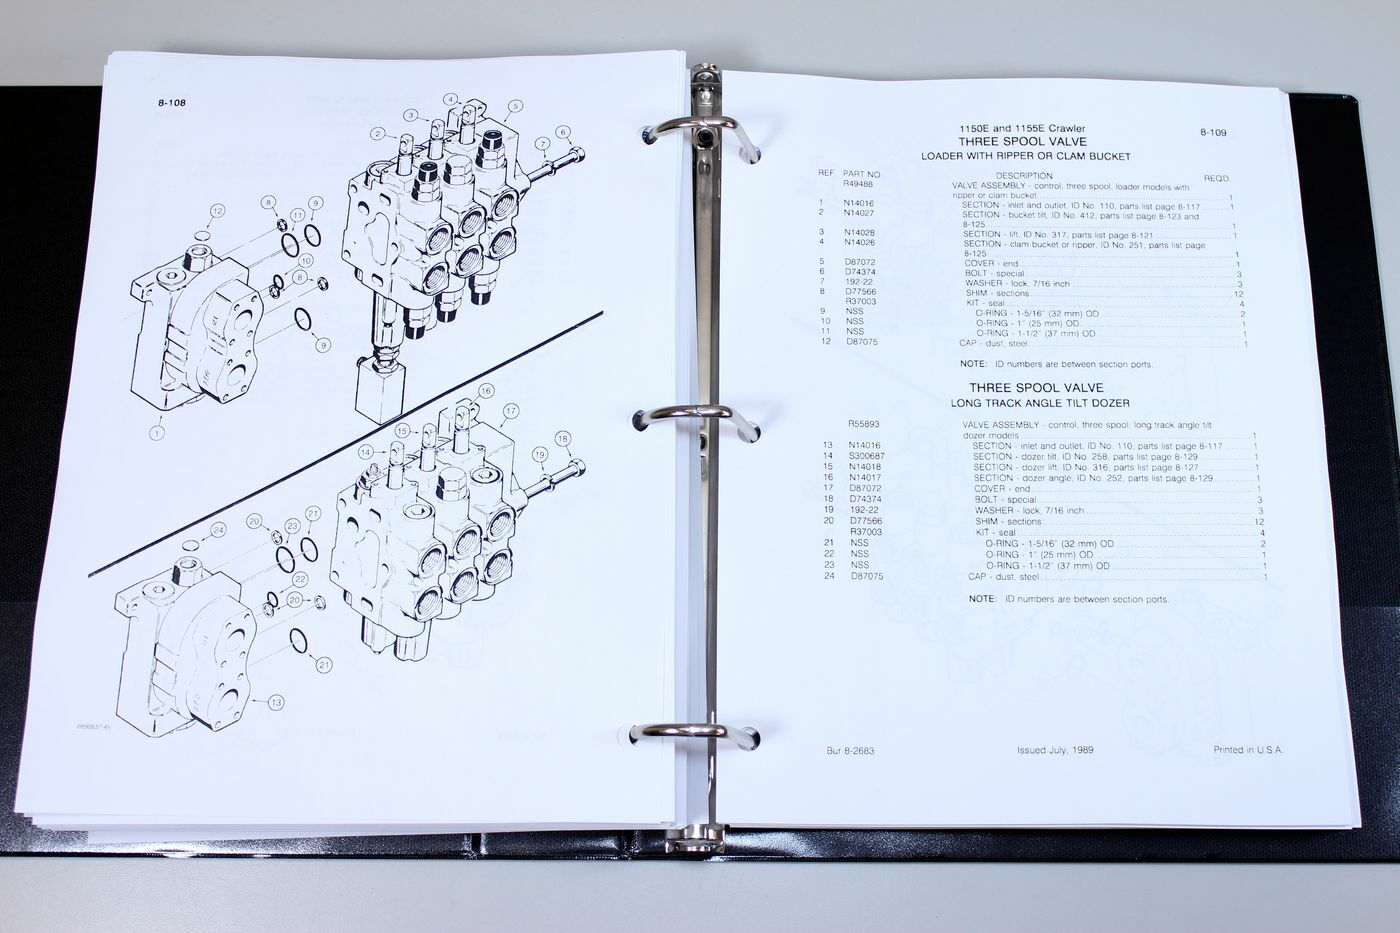 8-108
4
3
5
2
6
7
8
9
12
11
10
8
9
1
16
15
17
18
14
19
20
21
24
23
22
20
21
13
1150E and 1155E Crawler 8-109
THREE SPOOL VALVE
LOADER WITH RIPPER OR CLAM BUCKET
REF. PART NO. DESCRIPTION REQD.
R49488 VALVE ASSEMBLY - control, three spool, loader models with
ripper or clam bucket 1
1 N14016 SECTION - inlet and outlet, ID No. 110, parts list page 8-117 1
2 N14027 SECTION - bucket tilt, ID No. 412, parts list page 8-123 and
8-125 1
3 N14028 SECTION - lift, ID No. 317, parts list page 8-121 1
4 N14026 SECTION - clam bucket or ripper, ID No. 251, parts list page
8-125 1
5 D87072 COVER - end 1
6 D74374 BOLT - special 3
7 192-22 WASHER - lock, 7/16 inch 3
8 D77566 SHIM - sections 12
R37003 KIT - seal 4
9 NSS O-RING - 1-5/16" (32 mm) OD 2
10 NSS O-RING - 1" (25 mm) OD 1
11 NSS O-RING - 1-1/2" (37 mm) OD 1
12 D87075 CAP - dust, steel 1
NOTE: ID numbers are between section ports.
THREE SPOOL VALVE
LONG TRACK ANGLE TILT DOZER
R55893 VALVE ASSEMBLY - control, three spool, long track angle tilt
dozer models 1
13 N14016 SECTION - inlet and outlet, ID No. 110, parts list page 8-117 1
14 S300687 SECTION - dozer tilt, ID No. 258, parts list page 8-129 1
15 N14018 SECTION - dozer lift, ID No. 316, parts list page 8-127 1
16 N14017 SECTION - dozer angle, ID No. 252, parts list page 8-129 1
17 D87072 COVER - end 1
18 D74374 BOLT - special 3
19 192-22 WASHER - lock, 7/16 inch 3
20 D77566 SHIM - sections 12
R37003 KIT - seal 4
21 NSS O-RING - 1-5/16" (32 mm) OD 2
22 NSS O-RING - 1" (25 mm) OD 1
23 NSS O-RING - 1-1/2" (37 mm) OD 1
24 D87075 CAP - dust, steel 1
NOTE: ID numbers are between section ports.
Bur 8-2683 Issued July, 1989 Printed in U.S.A.